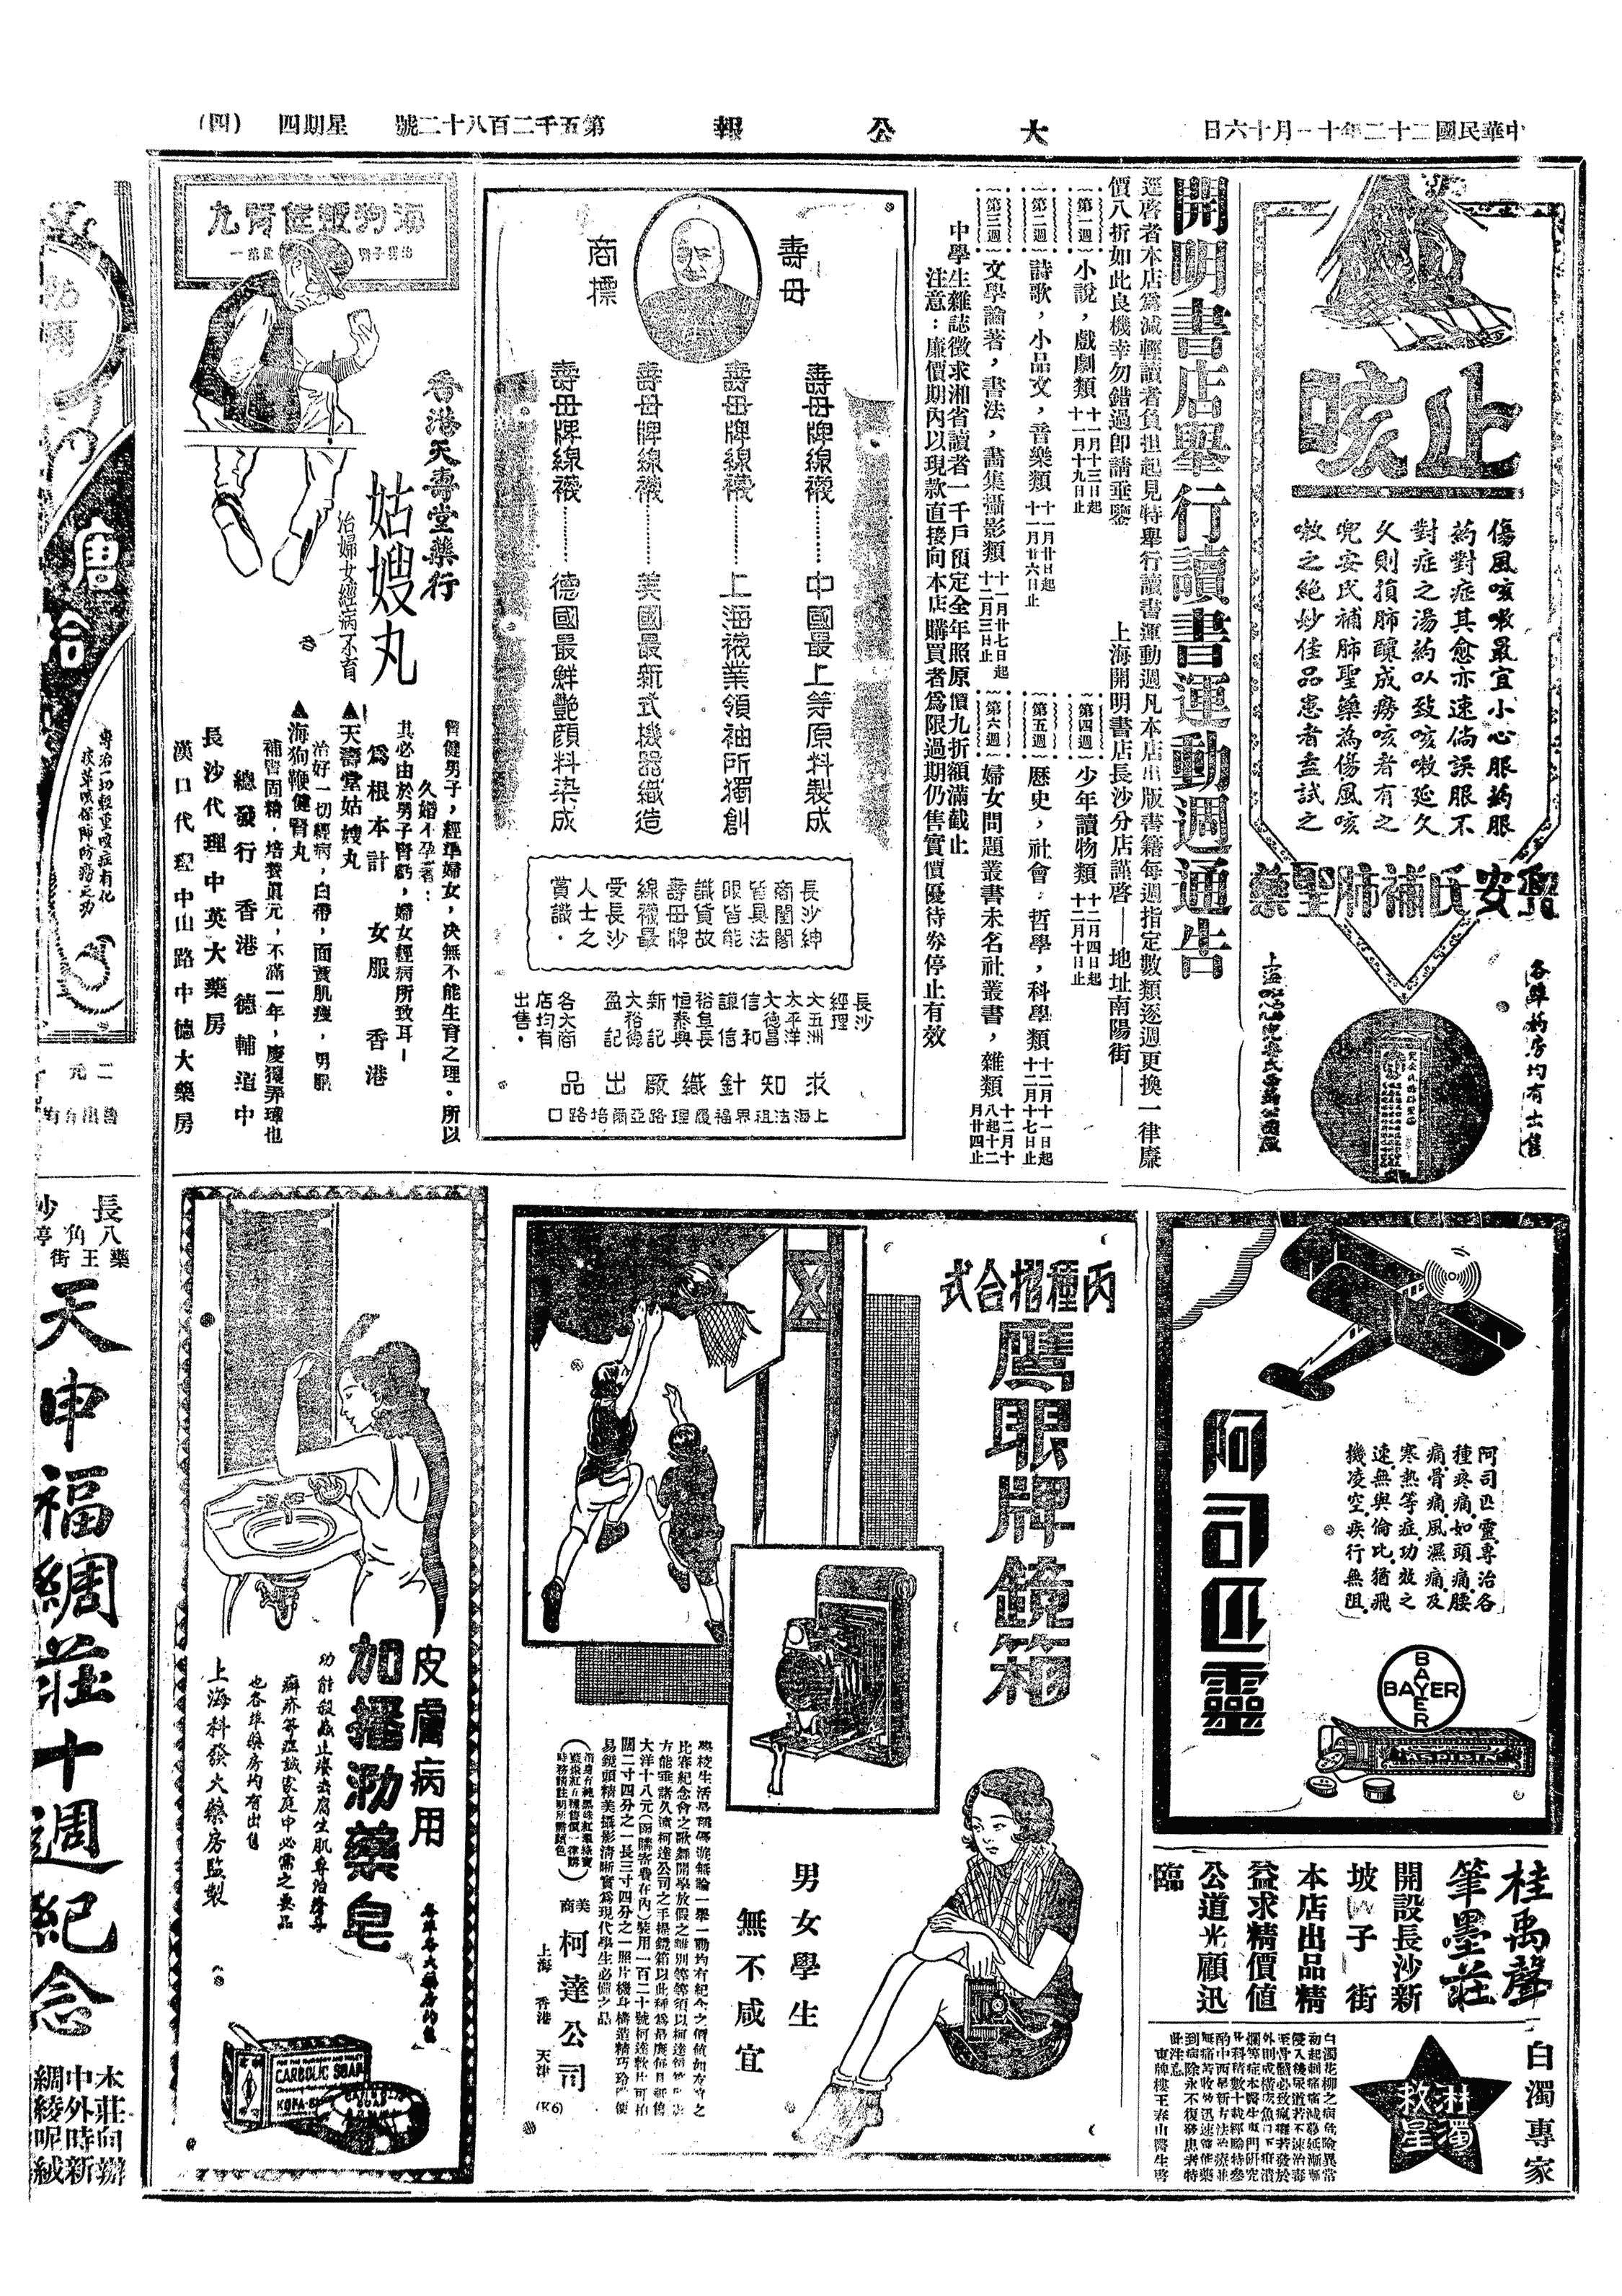 中華民國二十二年十一月十六日
大公報
第五千二百八十二號
星期四
(四)
止咳
傷風咳嗽最宜小心服药服
药對症其愈亦速倘誤服不
對症之湯药以致咳嗽延久
久則損肺釀成癆咳者有之
兜安氏補肺聖藥為傷風咳
嗽之絶妙佳品患者盍試之
兜安氏補肺聖藥
各埠药房均有出售
開明書店舉行讀書運動週通告
逕啓者本店為減輕讀者負担起見特舉行讀書運動週凡本店出版書籍每週指定數類逐週更換一律廉
價八折如此良機幸勿錯過卽請垂鑒
上海開明書店長沙分店謹啓——地址南陽街——
第一週
小說，戲劇類
十一月十三日起
十一月十九日止
第二週
詩歌，小品文，音樂類
十一月廿日起
十一月廿六日止
第三週
文學論著，書法，畫集攝影類
十一月廿七日起
十二月三日止
第四週
少年讀物類
十二月四日起
十二月十日止
第五週
歷史，社會，哲學，科學類
十二月十一日起
十二月十七日止
第六週
婦女問題叢書未名社叢書，雜類
十二月十
八起十二
月廿四止
中學生雜誌徵求湘省讀者一千戶預定全年照原價九折額滿截止
注意：廉價期內以現款直接向本店購買者爲限過期仍售實價優待券停止有效
壽母
商標
壽母牌線襪………中國最上等原料製成
壽母牌線襪………上海襪業領袖所獨創
壽母牌線襪………美國最新式機器織造
壽母牌線襪………德國最鮮艷顔料染成
長沙紳
商閨閣
皆具法
眼皆能
識貨故
壽母牌
線襪最
受長沙
人士之
賞識．
長沙
經理
大五洲
太平洋
大德昌
信和
謙信
裕阜長
恒泰興
新記
大裕德
盈記
各大商
店均有
出售．
求知針織廠出品
上海法租界福履理路亞爾培路口
海狗鞭健腎丸
香港天壽堂藥行
姑嫂丸
治婦女經病不育
腎健男子，經準婦女，决無不能生育之理。所以
久婚不孕者：
其必由於男子腎虧，婦女經病所致耳！
爲根本計 女服 香港
▲天壽堂姑嫂丸
治好一切經病，白帶，面黃肌瘦，男服
▲海狗鞭健腎丸
補腎固精，培養眞元，不滿一年，慶獲弄璋也
總發行 香港 德輔道中
長沙代理中英大藥房
漢口代理中山路中德大藥房
專治一切輕重咳症有化
痰萃咳保肺防癆之功
二元
長沙
八角亭
藥王街
天申福綢莊十週紀念
本莊向辦
中外時新
綢綾呢絨
阿司匹靈
阿司匹靈專治各
種疼痛如頭痛腰
痛骨痛風濕痛及
寒熱等症功效之
速無與倫比猶飛
機凌空疾行無阻
BAYER
BAYER
ASPIRIN
丙種摺合式
鷹眼牌鏡箱
男女學生
無不咸宜
大洋十八元(函購寄費在內)裝用一百二十號柯達軟片可拍
闊二寸四分之一長三寸四分之一照片機身構造精巧
易鏡頭精美攝影清晰實爲現代學生必備之品
美商
柯達公司
上海 香港 天津
(K6)
皮膚病用
加播泐藥皂
功能殺蟲止癢去腐生肌專治
癬疥等症誠家庭中必需之要品
也各埠藥房均有出售
上海科發大藥房監製
各埠各大藥房均售
CARBOLIC SOAP
桂禹聲
筆墨莊
開設長沙新
坡子街
本店出品精
益求精價值
公道光顧迅
臨
白濁專家
淋濁
救星
東牌樓王春山醫生啓